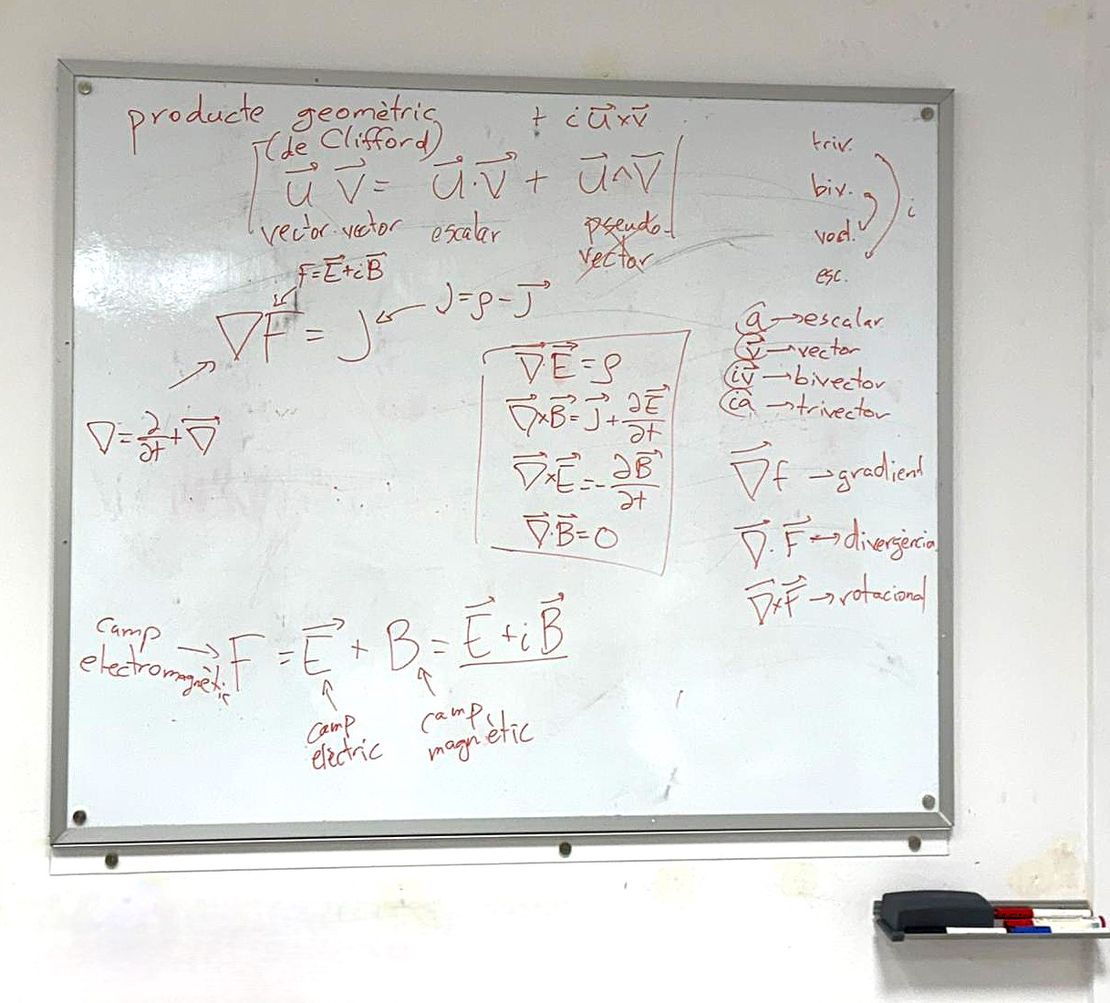 producte geomètric
(de Clifford)
+ i u⃗×v⃗
u⃗ v⃗ = u⃗·v⃗ + u⃗∧v⃗
vector·vector escalar pseudo-
vector
triv.
biv.
vect.
esc.
i
F=E⃗+iB⃗
∇F = J
J=ρ-J⃗
∇=∂/∂t+∇⃗
∇⃗·E⃗=ρ
∇⃗×B⃗=J⃗+∂E⃗/∂t
∇⃗×E⃗=-∂B⃗/∂t
∇⃗·B⃗=0
a→escalar
v⃗→vector
iv⃗→bivector
ia→trivector
∇⃗f→gradient
∇⃗·F⃗→divergència
∇⃗×F⃗→rotacional
camp
electromagnètic → F = E⃗ + B = E⃗+iB⃗
camp
elèctric
camp
magnètic